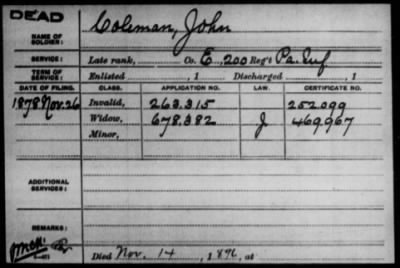 DEAD
NAME OF SOLDIER: Coleman, John
SERVICE: Late rank, Co. E, 200 Reg't Pa. Inf
TERM OF SERVICE: Enlisted , 1 Discharged , 1
DATE OF FILING. CLASS. APPLICATION NO. LAW. CERTIFICATE NO.
1878 Nov. 26 Invalid, 263,315 252099
Widow, 678,382 J 469967
Minor,
ADDITIONAL SERVICES:
REMARKS:
Died Nov. 14 , 1896, at